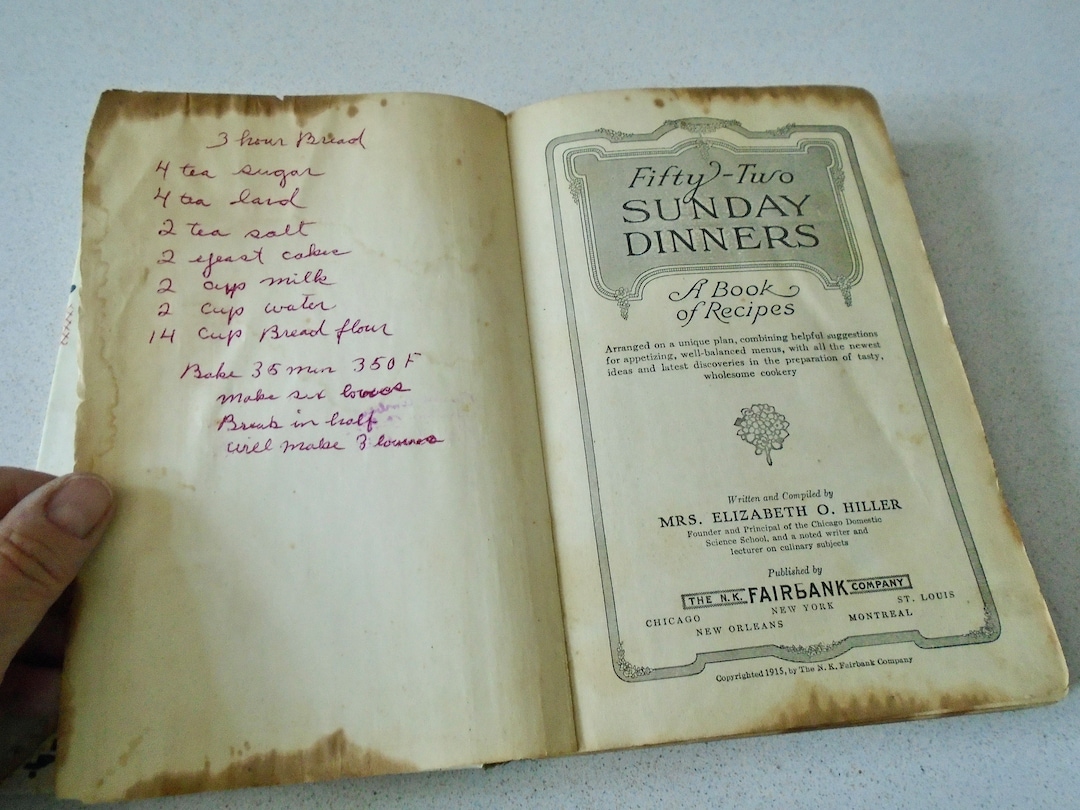 3 hour Bread
4 tea sugar
4 tea lard
2 tea salt
2 yeast cakes
2 cup milk
2 cup water
14 cup Bread flour
Bake 35 min 350 F
make six loaves
Break in half
will make 3 loaves
Fifty-Two
SUNDAY
DINNERS
A Book
of Recipes
Arranged on a unique plan, combining helpful suggestions
for appetizing, well-balanced menus, with all the newest
ideas and latest discoveries in the preparation of tasty,
wholesome cookery
Written and Compiled by
MRS. ELIZABETH O. HILLER
Founder and Principal of the Chicago Domestic
Science School, and a noted writer and
lecturer on culinary subjects
Published by
THE N.K. FAIRBANK COMPANY
CHICAGO NEW YORK ST. LOUIS
NEW ORLEANS MONTREAL
Copyrighted 1915, by The N. K. Fairbank Company